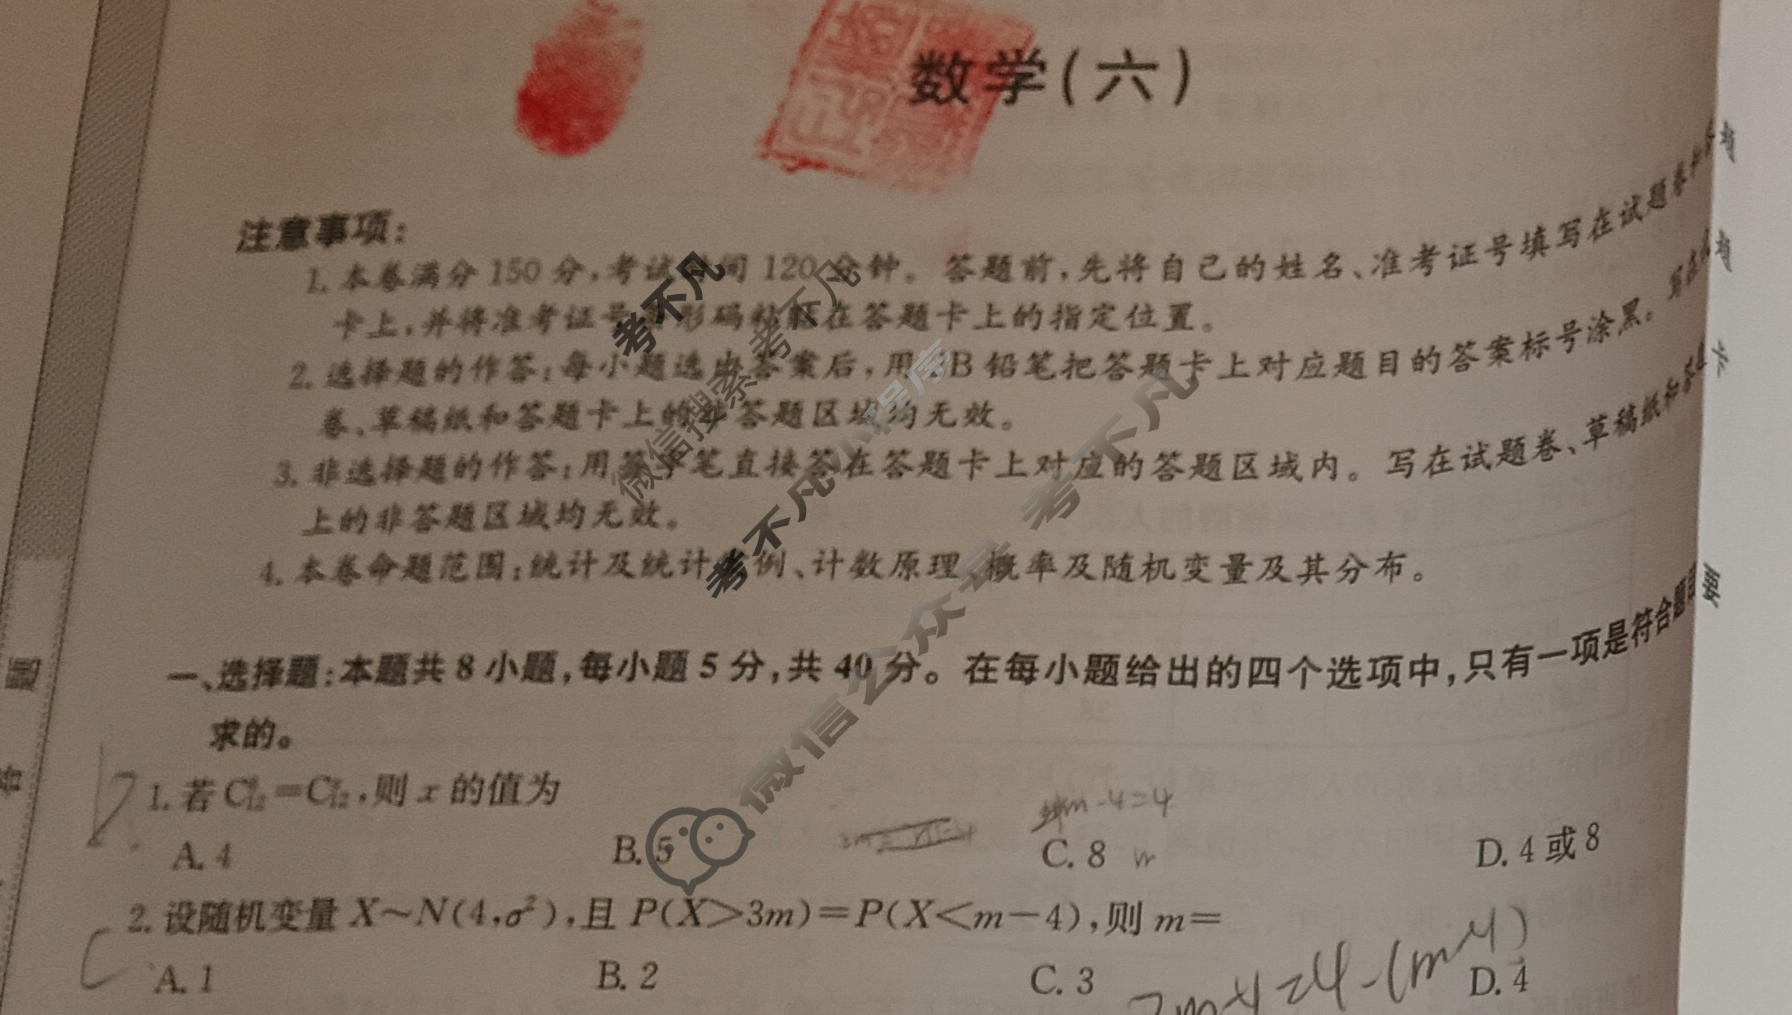 数学(六)
注意事项:
1. 本卷满分 150 分,考试时间 120 分钟。答题前,先将自己的姓名、准考证号填写在试题卷和
卡上,并将准考证号条形码粘贴在答题卡上的指定位置。
2. 选择题的作答:每小题选出答案后,用2B 铅笔把答题卡上对应题目的答案标号涂黑。写在
卷、草稿纸和答题卡上的非答题区域均无效。
3. 非选择题的作答:用签字笔直接答在答题卡上对应的答题区域内。写在试题卷、草稿纸和答
上的非答题区域均无效。
4. 本卷命题范围:统计及统计案例、计数原理、概率及随机变量及其分布。
一、选择题:本题共 8 小题,每小题 5 分,共 40 分。在每小题给出的四个选项中,只有一项是符合题目要
求的。
1. 若 ,则 x 的值为
A. 4 B. 5 C. 8 D. 4 或 8
2. 设随机变量 X~N(4,σ²),且 P(X>3m)=P(X<m-4),则 m=
A. 1 B. 2 C. 3 D. 4
m-4=4
考不凡
微信搜索 考不凡
考不凡小程序
微信公众号 考不凡
题
答